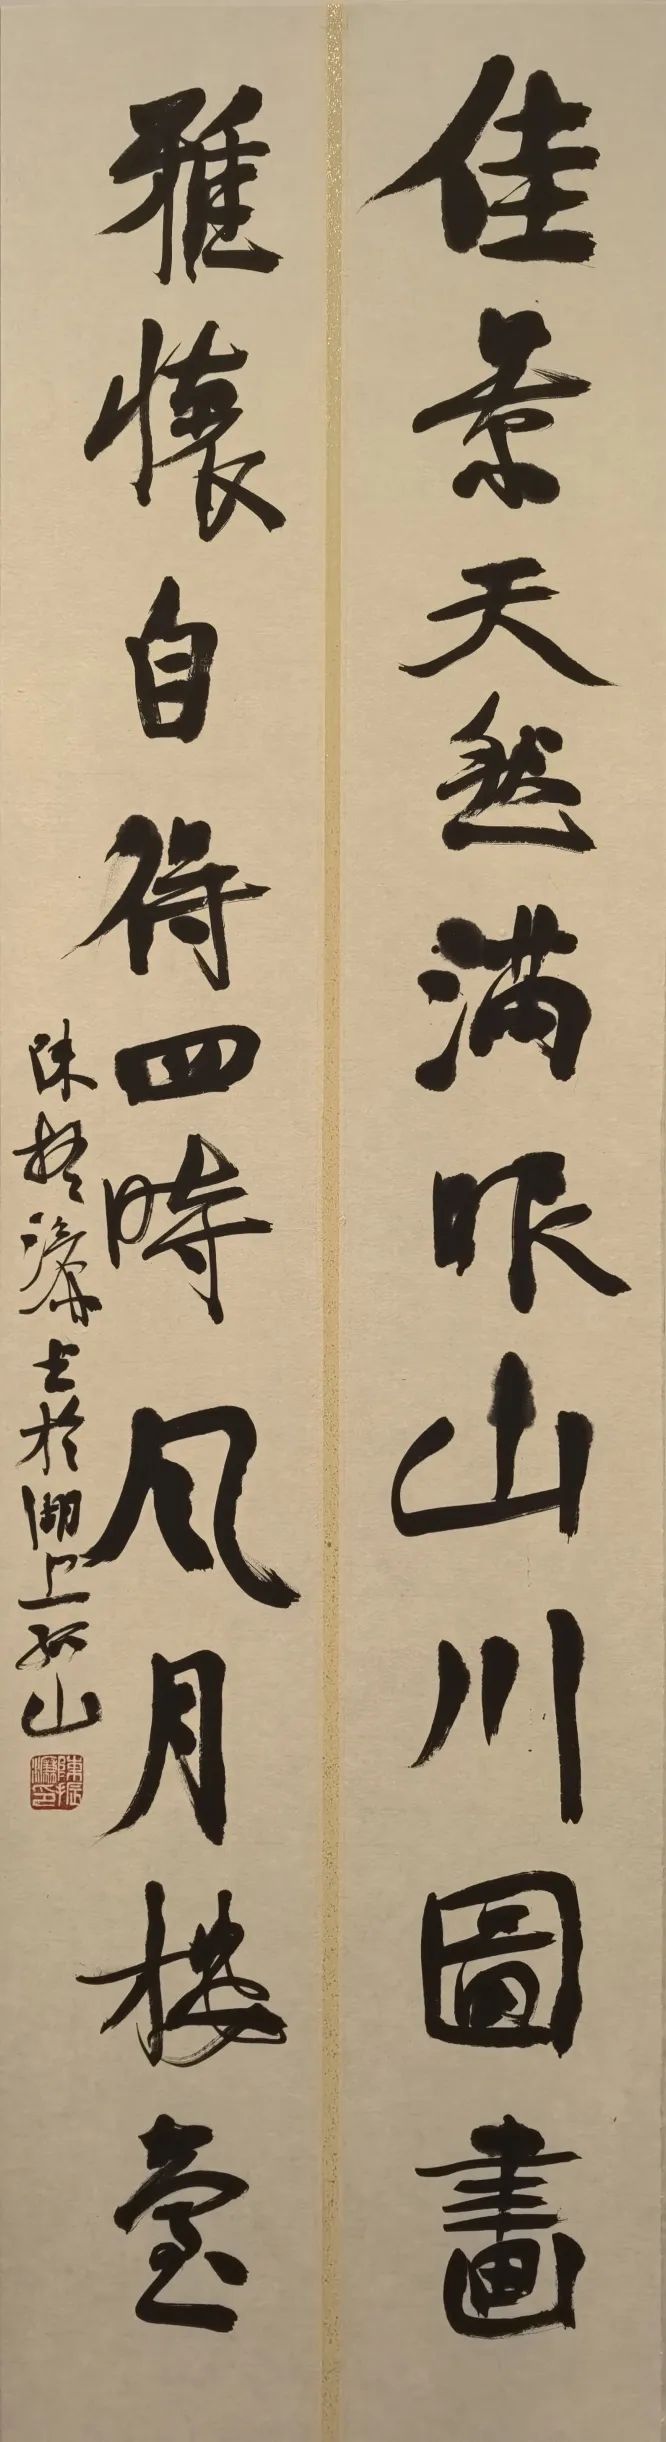 佳景天然满眼山川圖畫
雅懷自得四時风月楼臺
陈振濂書於湖上孤山
陳振濂印